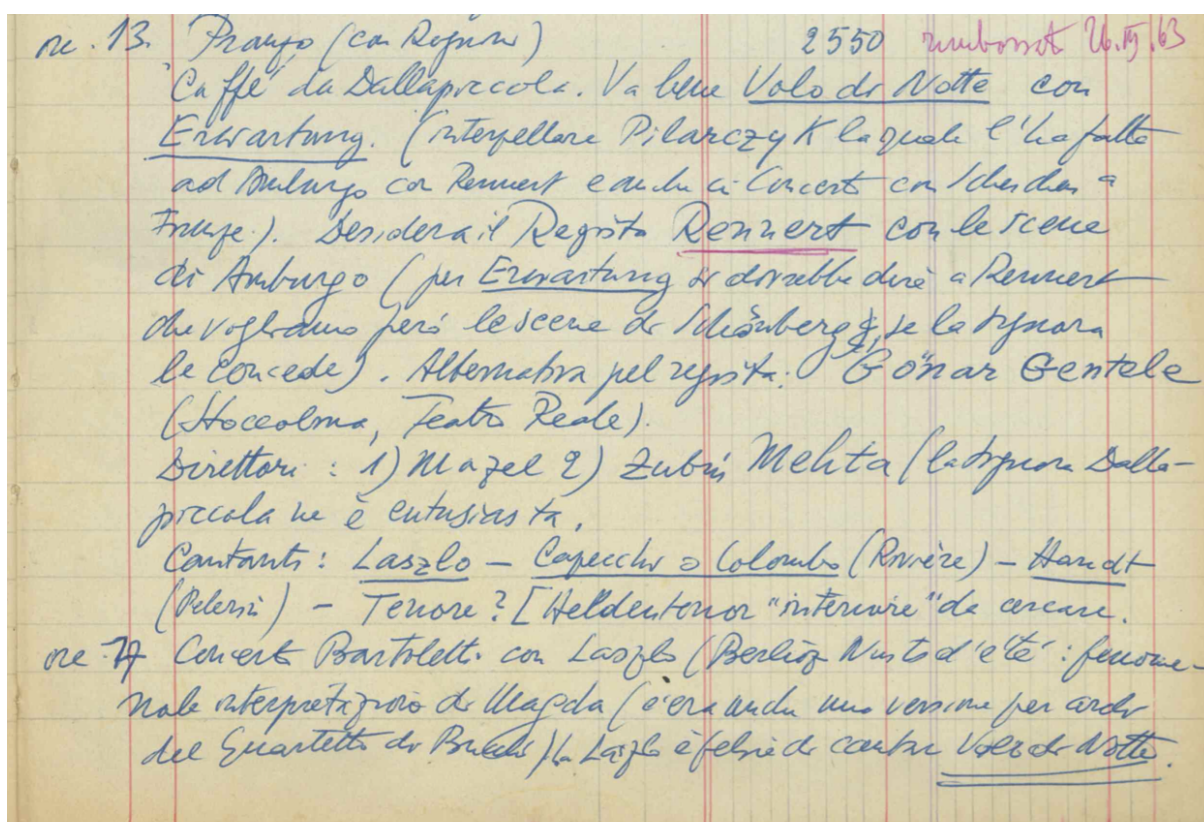 ore. 13. Pranzo (con Regioni) 2550 rimborsate 26.IV.63
Caffè da Dallapiccola. Va bene Volo di Notte con
Erwartung. (interpellare Pilarczyk la quale l'ha fatta
ad Amburgo con Rennert e anche in Concert con Scherchen a
Firenze.). Desidera il Regista Rennert con le scene
di Amburgo (per Erwartung si dovrebbe dire a Rennert
che vogliamo però le scene di Schönberg, se la signora
le concede). Alternativa pel regista: Gönar Gentele
(Stoccolma, Teatro Reale).
Direttori: 1) Mazel 2) Zubin Mehta (la signora Dalla-
piccola ne è entusiasta.
Cantanti: Laszlo – Capecchi o Colombo (Rivière) – Handt
(Pelerin) – Tenore? [Heldentenor "interiore" da cercare.
ore 17 Concerto Bartoletti con Laszlo (Berlioz Nuits d'été: fenome-
nale interpretazione di Magda (c'era anche una versione per archi
del Quartetto di Bucchi) la Laszlo è felice di cantar Volo di Notte.